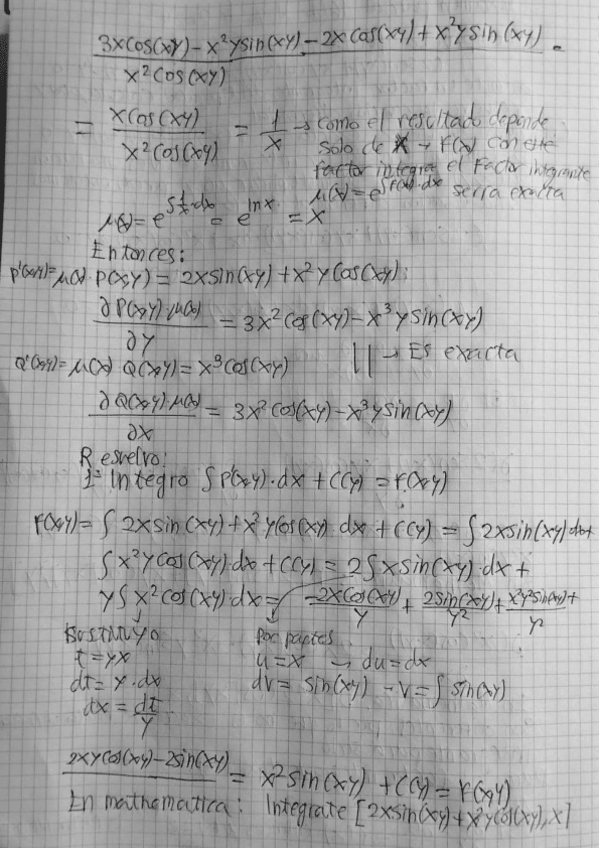 3xcos(xy) - x²ysin(xy) - 2x cos(xy) + x²y sin(xy) .
x² cos(xy)
= xcos(xy) / x² cos(xy) = 1/x → Como el resultado depende
solo de x → F(x) con este
factor integra el Factor integrante
μ(x) = e^∫F(x)·dx serra exacta
μ(x) = e^∫1/x·dx = e^lnx = x
Entonces:
P'(x,y) = μ(x)·P(x,y) = 2xsin(xy) + x²y cos(xy):
∂P(x,y)·μ(x) / ∂y = 3x² cos(xy) - x³y sin(xy)
Q'(x,y) = μ(x) Q(x,y) = x³cos(xy) || → Es exacta
∂Q(x,y)·μ(x) / ∂x = 3x² cos(xy) - x³y sin(xy)
Resuelvo:
1º Integro ∫P'(x,y)·dx + C(y) = F(x,y)
F(x,y) = ∫ 2xsin(xy) + x²ycos(xy) dx + C(y) = ∫2xsin(xy)dx+
∫x²ycos(xy)dx + C(y) = 2∫xsin(xy)·dx +
y∫x² cos(xy)·dx = -2xcos(xy)/y + 2sin(xy)/y² + x²y²sin(xy)+ / y²
Sustituyo Por partes
t = yx u = x → du = dx
dt = y·dx dv = sin(xy) - v = ∫ sin(xy)
dx = dt/y
2xycos(xy) - 2sin(xy) = x² sin(xy) + C(y) = F(x,y)
En mathematica: Integrate [2xsin(xy) + x²ycos(xy), x]